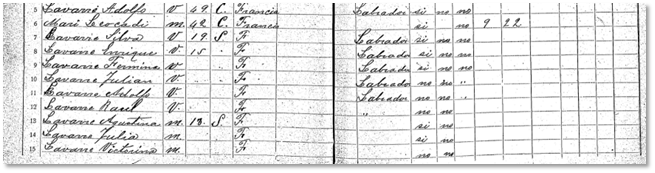 5 Lavarre Adolfo V 49 C. Francia Labrador si no no
6 Mari m. 42 C. Francia si no no 9 22
7 Lavarre Silva V 19 S F Labrador si no
8 Lavarre Enrique V 15 F Labrador si no
9 Lavarre V F Labrador si no
10 Lavarre Julian V F Labrador no no "
11 Lavarre Adolfo V F Labrador no no
12 Lavarre Raul V. F " no no
13 Lavarre Agustina m. 13 S F si no
14 Lavarre Julia m. F si no
15 Lavarre Victorina m. F no no